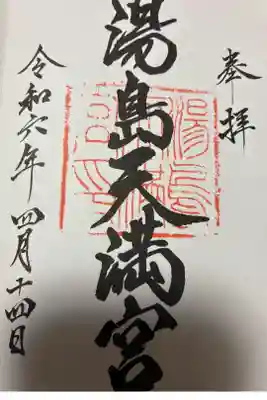 奉拝
湯島天満宮
令和六年 四月十四日